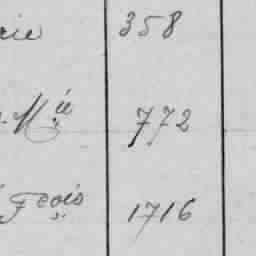 rie 358
Mie 772
Fcois 1716